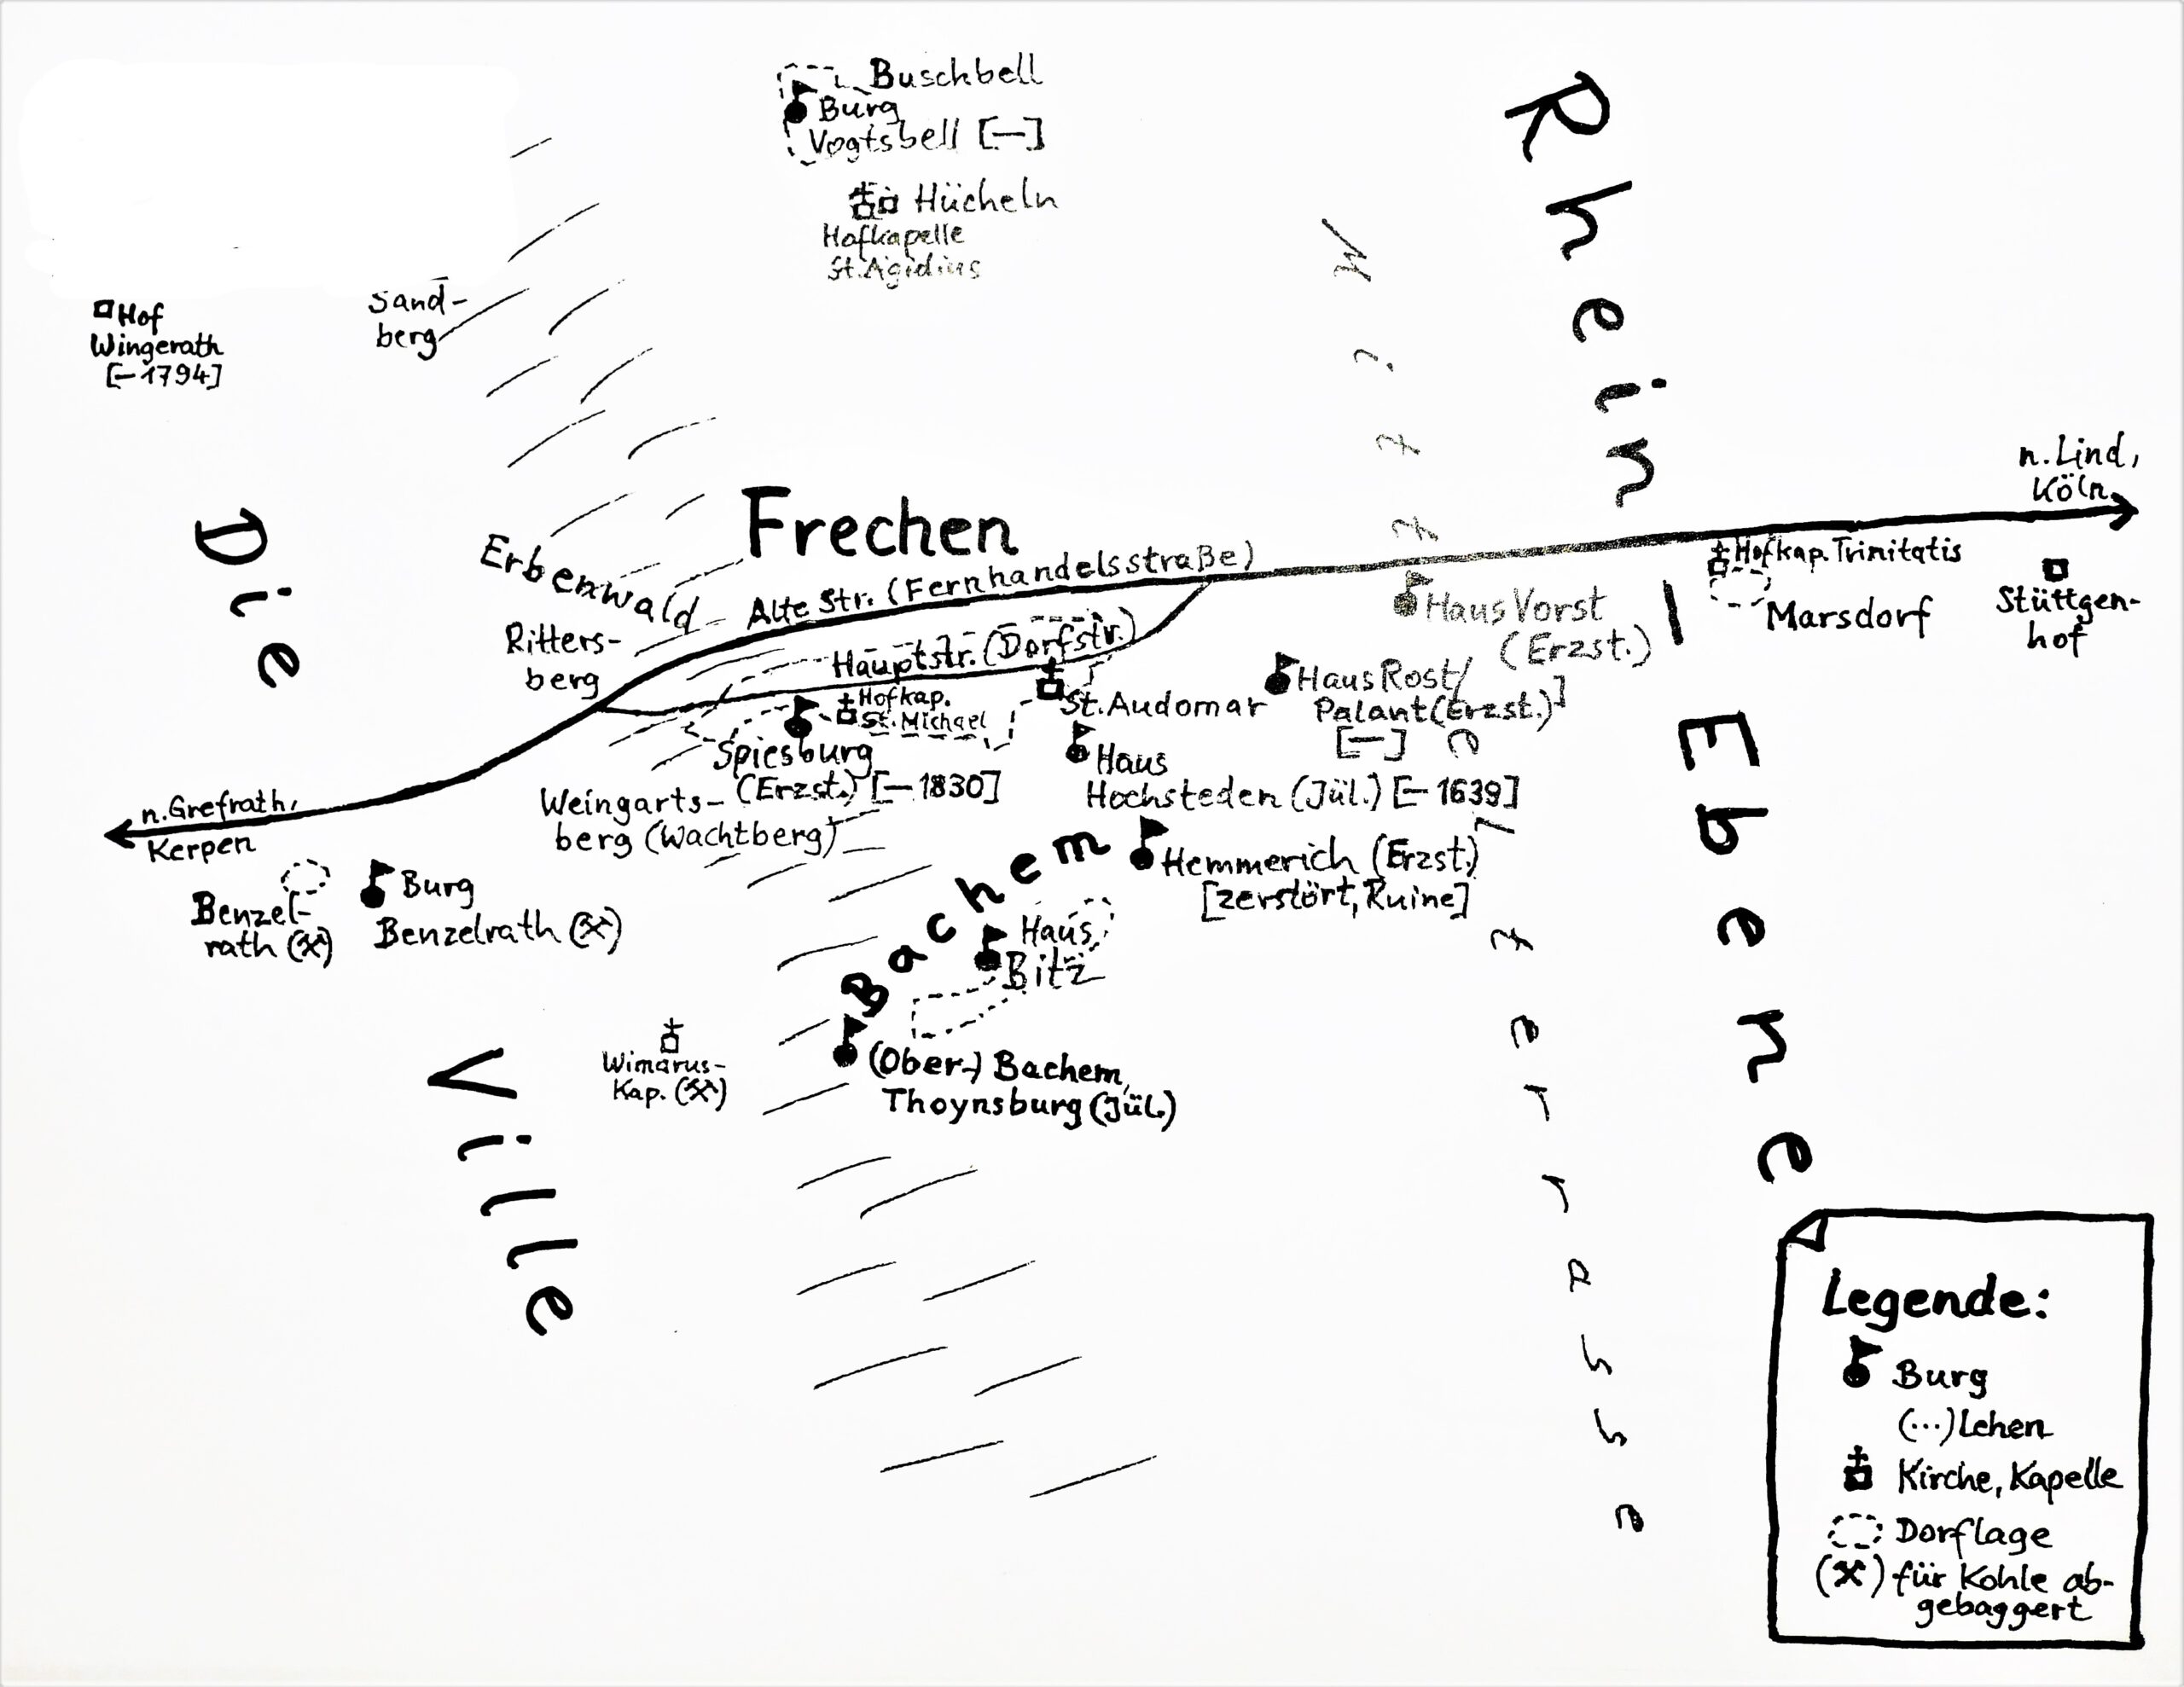 Buschbell
Burg
Vogtsbell [—]
Hücheln
Hofkapelle
St. Ägidius
Hof
Wingerath
[— 1794]
Sand-
berg
Rhein-Ebene
Mittelterrasse
Die Ville
n. Lind,
Köln
Frechen
Erbenwald
Alte Str. (Fernhandelsstraße)
Hofkap. Trinitatis
Marsdorf
Stüttgen-
hof
Haus Vorst
(Erzst.)
Ritters-
berg
Hauptstr. (Dorfstr.)
Hofkap.
St. Michael
St. Audomar
Haus Rost/
Palant (Erzst.)
[—]
Spiesburg
(Erzst.) [— 1830]
Haus
Hochsteden (Jül.) [— 1639]
Weingarts-
berg (Wachtberg)
n. Grefrath,
Kerpen
Benzel-
rath (⚒)
Burg
Benzelrath (⚒)
Bachem
Hemmerich (Erzst.)
[zerstört, Ruine]
Haus
Bitz
Wimarus-
Kap. (⚒)
(Ober-) Bachem,
Thoynsburg (Jül.)
Legende:
Burg
(...) Lehen
Kirche, Kapelle
Dorflage
(⚒) für Kohle ab-
gebaggert